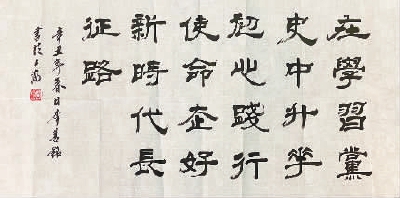 在學習黨
史中升華
初心踐行
使命走好
新時代長
征路
辛丑年春日李
書於